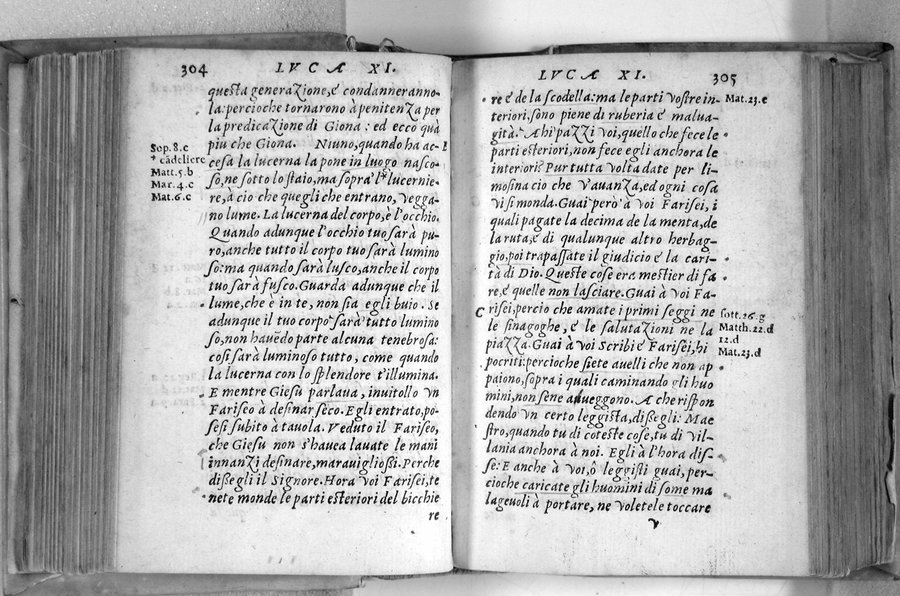 304 LVCA XI.
questa generazione, e condanneranno
la: percioche tornarono à penitenza per
la predicazione di Giona: ed ecco quà
più che Giona. Niuno, quando ha ac-
Sop. 8. c
cesa la lucerna la pone in luogo nasco-
* cādeliere
so, ne sotto lo staio, ma sopra 'l * lucernie-
Matt. 5. b
re, à cio che quegli che entrano, vegga-
Mar. 4. c
Mat. 6. c
no lume. La lucerna del corpo, è l'occhio.
Quando adunque l'occhio tuo sarà pu-
ro, anche tutto il corpo tuo sarà lumino
so: ma quando sarà lusco, anche il corpo
tuo sarà fusco. Guarda adunque che il
lume, che è in te, non sia egli buio. Se
adunque il tuo corpo sarà tutto lumino
so, non hauēdo parte alcuna tenebrosa:
cosi sarà luminoso tutto, come quando
la lucerna con lo splendore t'illumina.
E mentre Giesù parlaua, inuitollo vn
Fariseo à desinar sēco. Egli entrato, po-
sesi subito à tauola. Veduto il Fariseo,
che Giesù non s'hauea lauate le mani
innanzi desinare, marauigliossi. Perche
disse gli il Signore. Hora voi Farisei, te
nete monde le parti esteriori del bicchie
re
LVCA XI. 305
re e de la scodella: ma le parti vostre in-
Mat. 23. e
teriori, sono piene di ruberia e malua-
gità. Ahi pazzi voi, quello che fece le
parti esteriori, non fece egli anchora le
interiori? Pur tutta volta date per li-
mosina cio che v'auanza, ed ogni cosa
vi si monda. Guai però à voi Farisei, i
quali pagate la decima de la menta, de
la ruta, e di qualunque altro herbag-
gio, poi trapassate il giudicio e la cari-
tà di Dio. Queste cose era mestier di fa
re, e quelle non lasciare. Guai à voi Fa-
C
risei, percio che amate i primi seggi ne
sott. 26. g
le sinagoghe, e le salutazioni ne la
Matth. 22. d
12. d
piazza. Guai à voi Scribi e Farisei, hi
Mat. 23. d
pocriti: percioche siete auelli che non ap
paiono, sopra i quali caminando gli huo
mini, non sene aueggono. A che rispon
dendo vn certo leggista, disse gli: Mae
stro, quando tu di coteste cose, tu di vil-
lania anchora à noi. Egli à l'hora dis-
se: E anche à voi, ò leggisti guai, per-
cioche caricate gli huomini di some ma
lageuoli à portare, ne voletele toccare
V